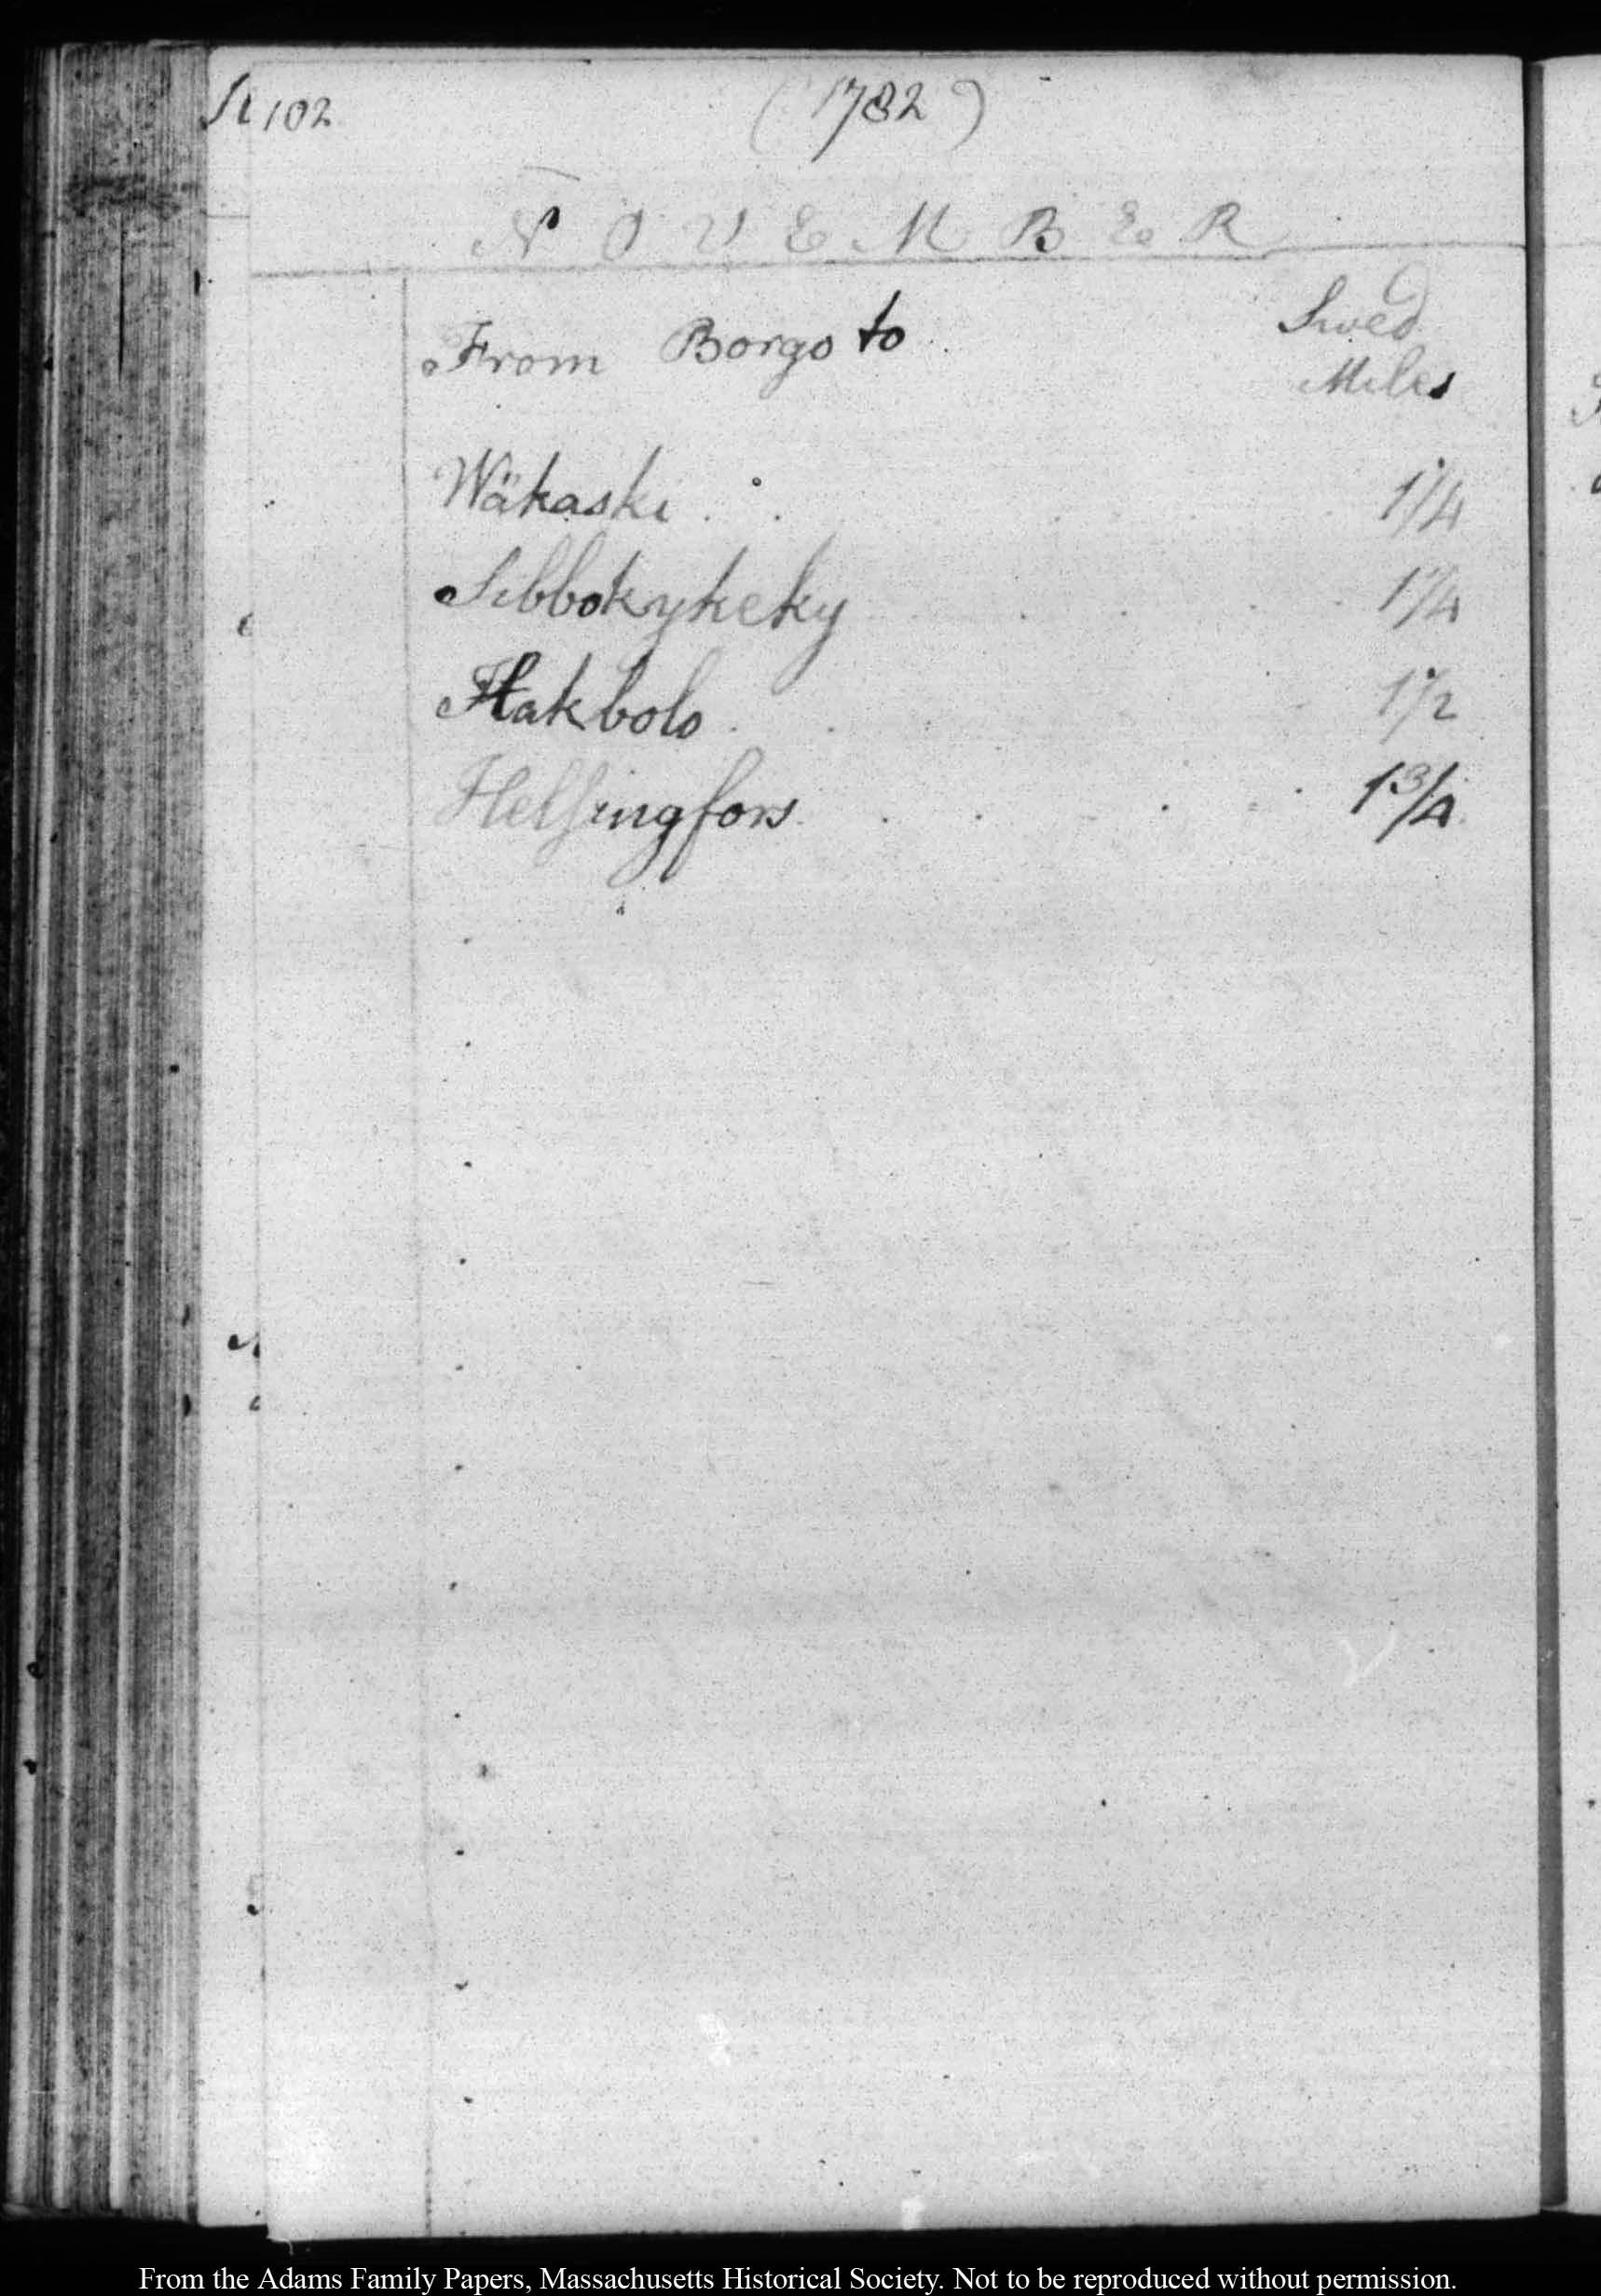 102
(1782)
NOVEMBER
From Borgo to Swed
Miles
Wäkaski . . . 1 1/4
Sibbokykeky . . . 1 1/4
Hakbolo . . . 1 1/2
Helsingfors . . . 1 3/4
From the Adams Family Papers, Massachusetts Historical Society. Not to be reproduced without permission.